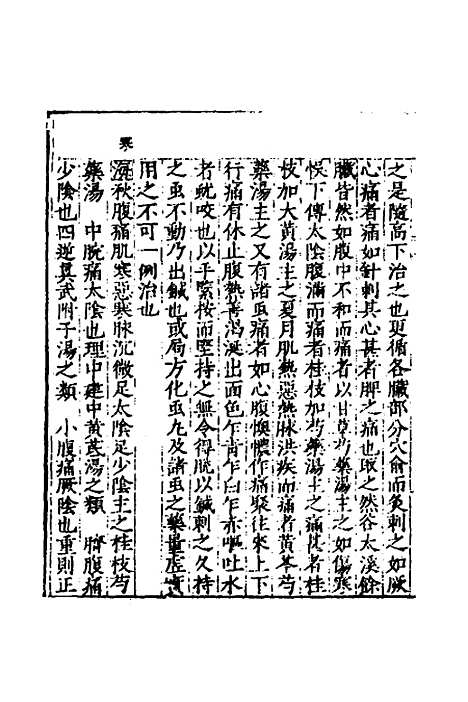 之是隨高下治之也更循各臟部分穴俞而灸刺之如厥
心痛者痛如針刺其心甚者脾之痛也取之然谷太溪餘
臟皆然如腹中不和而痛者以甘草芍藥湯主之如傷寒
悞下傳太陰腹滿而痛者桂枝加芍藥湯主之痛甚者桂
枝加大黃湯主之夏月肌熱惡熱脉洪疾而痛者黃芩芍
藥湯主之又有諸虫痛者如心腹懊憹作痛聚往來上下
行痛有休止腹熱善渴涎出面色乍青乍白乍赤嘔吐水
者蚘咬也以手緊按而堅持之無令得脫以鍼刺之久持
之虫不動乃出鍼也或局方化虫丸及諸虫之藥量虛實
用之不可一例治也
寒
秋腹痛肌寒惡寒脉沉微足太陰足少陰主之桂枝芍
藥湯　中脘痛太陰也理中建中黃芪湯之類　臍腹痛
少陰也四逆真武附子湯之類　小腹痛厥陰也重則正